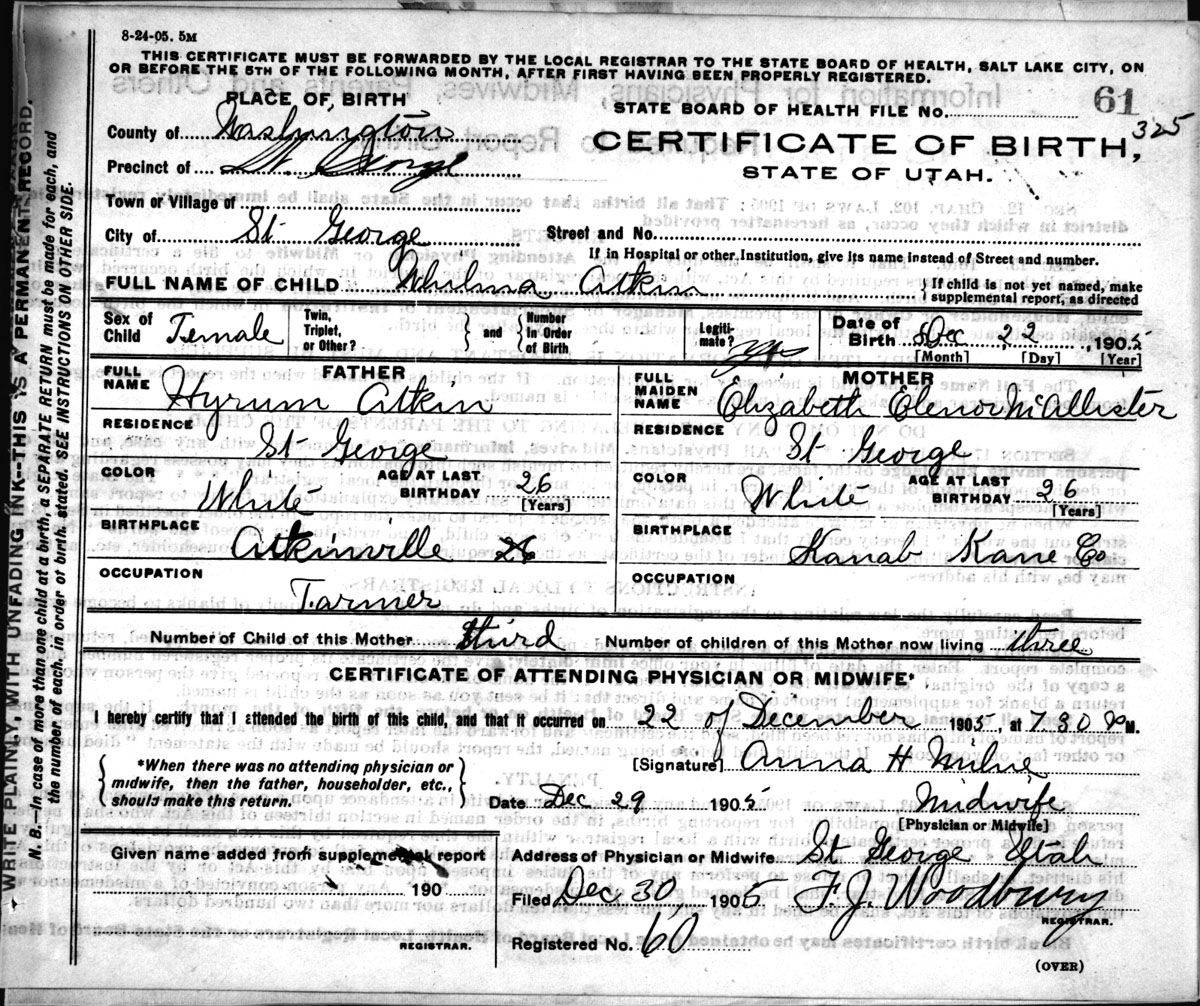 8-24-05. 5M
THIS CERTIFICATE MUST BE FORWARDED BY THE LOCAL REGISTRAR TO THE STATE BOARD OF HEALTH, SALT LAKE CITY, ON
OR BEFORE THE 5TH OF THE FOLLOWING MONTH, AFTER FIRST HAVING BEEN PROPERLY REGISTERED.
PLACE OF BIRTH
STATE BOARD OF HEALTH FILE No. 61
325
County of Washington
CERTIFICATE OF BIRTH,
Precinct of St. George
STATE OF UTAH.
Town or Village of
City of St George Street and No.
If in Hospital or other Institution, give its name instead of Street and number.
FULL NAME OF CHILD Whilma Atkin { If child is not yet named, make
supplemental report, as directed
Sex of Child Female
Twin, Triplet, or Other? } and { Number In Order of Birth
Legiti- mate? yes
Date of Birth Dec 22, 1905
[Month] [Day] [Year]
FATHER
FULL NAME Hyrum Atkin
RESIDENCE St George
COLOR White AGE AT LAST BIRTHDAY 26
[Years]
BIRTHPLACE Atkinville
OCCUPATION Farmer
MOTHER
FULL MAIDEN NAME Elizabeth Elenor McAllister
RESIDENCE St George
COLOR White AGE AT LAST BIRTHDAY 26
[Years]
BIRTHPLACE Kanab Kane Co
OCCUPATION
Number of Child of this Mother third Number of children of this Mother now living three
CERTIFICATE OF ATTENDING PHYSICIAN OR MIDWIFE*
I hereby certify that I attended the birth of this child, and that it occurred on 22 of December 1905, at 7.30 P M.
{ *When there was no attending physician or
midwife, then the father, householder, etc.,
should make this return. }
[Signature] Anna H Milne
Date Dec 29 1905 Midwife
[Physician or Midwife]
Given name added from supplemental report
190
REGISTRAR.
Address of Physician or Midwife St George Utah
Filed Dec 30 1905 F. J. Woodbury
REGISTRAR.
Registered No. 60
(OVER)
WRITE PLAINLY, WITH UNFADING INK--THIS IS A PERMANENT RECORD.
N. B.--In case of more than one child at a birth, a SEPARATE RETURN must be made for each, and
the number of each, in order of birth, stated. SEE INSTRUCTIONS ON OTHER SIDE.